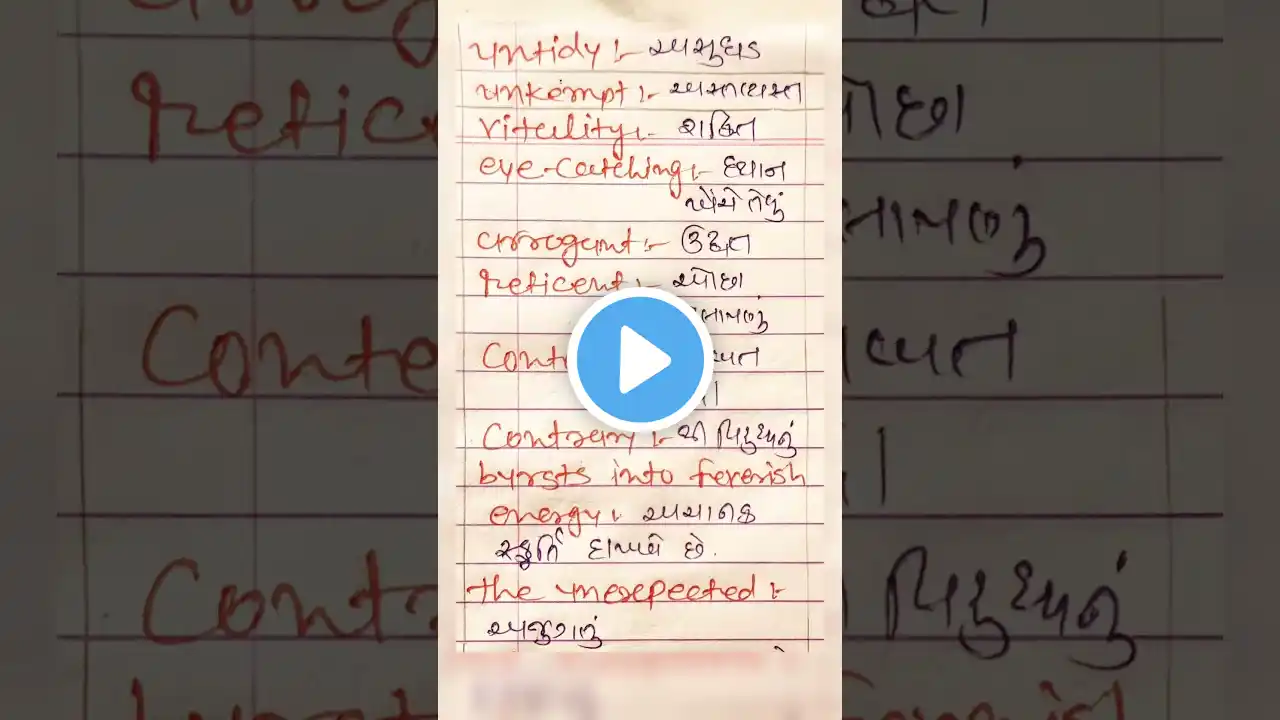 untidy :- અસુઘડ
unkempt :- અસ્તવ્યસ્ત
vitality :- શક્તિ
eye-catching :- ધ્યાન
ખેંચે તેવું
arrogant :- ઉદ્ધત
reticent :- ઓછા
Contrary :- થી વિરુદ્ધનું
bursts into feverish
energy :- અચાનક
સ્ફુર્તિ દાખવે છે.
the unexpected :-
અજુગતું